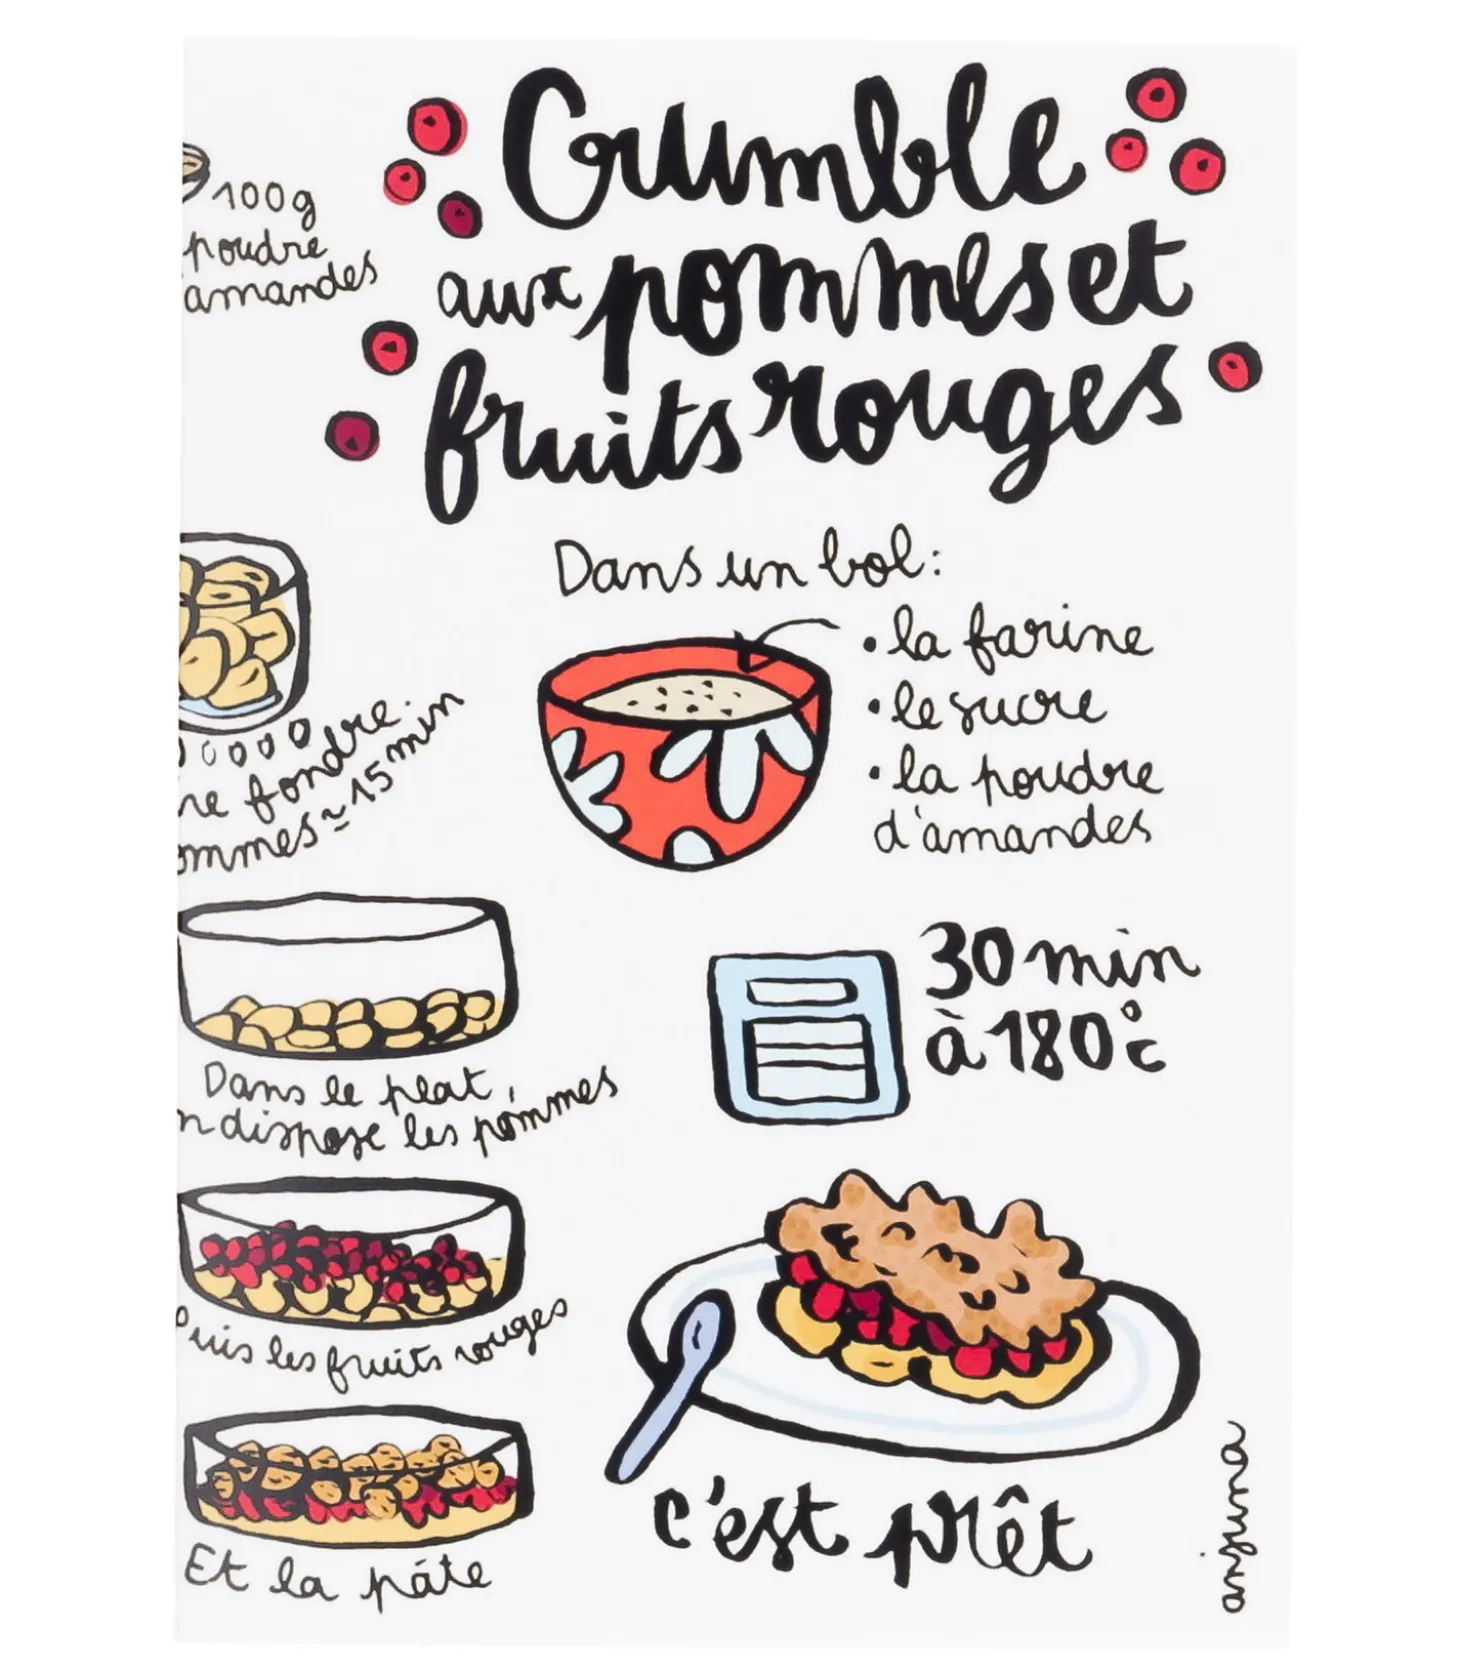 Crumble
aux pommes et
fruits rouges
100g
poudre
amandes
Dans un bol:
• la farine
• le sucre
• la poudre
d'amandes
re fondre
ommes ≃ 15 min
Dans le plat,
n dispose les pommes
Puis les fruits rouges
Et la pâte
30 min
à 180°c
c'est prêt
anjuna